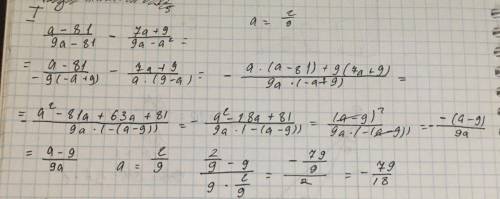 I
(a - 81)/(9a - 81) - (7a + 9)/(9a - a²) = a = 2/9
= (a - 81)/(-9(-a + 9)) - (7a + 9)/(a · (9 - a)) = - (a · (a - 81) + 9(7a + 9))/(9a · (-a + 9)) =
= - (a² - 81a + 63a + 81)/(9a · (-(a - 9))) = - (a² - 18a + 81)/(9a · (-(a - 9))) = (a - 9)²/(9a · (-(a - 9))) = - -(a - 9)/(9a)
= (a - 9)/(9a) a = 2/9 (2/9 - 9)/(9 · 2/9) = (-79/9)/2 = - 79/18